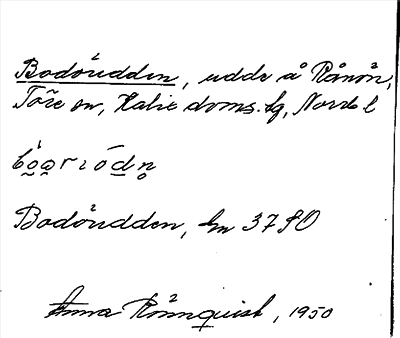 Bodöudden, udde å Rånön,
Töre sn, Kalix doms. lg, Norrb l
Bodöudden, km 3780
Anna Rönnquist, 1950